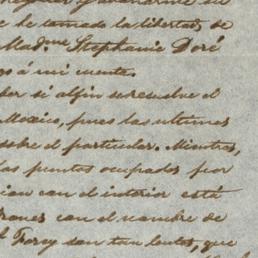 he tomado la libertad de
Mad.me Stephanie Doré
go á mi cuenta.
ber si al fin se resuelve el
Mexico, pues las ultimas
sobre el particular. Mientras,
los puntos ocupados por
cian con el interior está
trones con el nombre de
l Forey son tan lentos, que